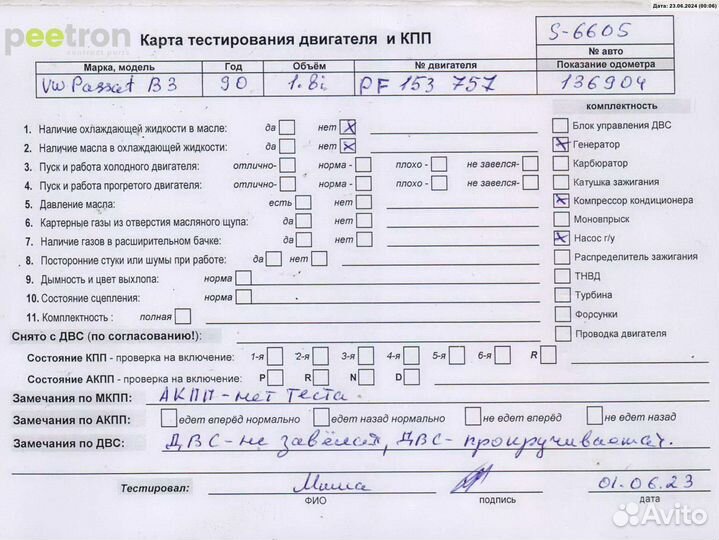 Дата: 23.06.2024 (00:06)
peetron
contract parts
Карта тестирования двигателя и КПП
S-6605
№ авто
Марка, модель Год Объём № двигателя Показание одометра
VW Passat B3 90 1.8i PF 153 757 136904
комплектность
1. Наличие охлаждающей жидкости в масле: да нет X
Блок управления ДВС
2. Наличие масла в охлаждающей жидкости: да нет X
Генератор
3. Пуск и работа холодного двигателя: отлично- норма - плохо - не завелся-
Карбюратор
4. Пуск и работа прогретого двигателя: отлично- норма - плохо - не завелся-
Катушка зажигания
5. Давление масла: есть нет
Компрессор кондиционера
6. Картерные газы из отверстия масляного щупа: да нет
Моновпрыск
7. Наличие газов в расширительном бачке: да нет
Насос г/у
8. Посторонние стуки или шумы при работе: да нет
Распределитель зажигания
9. Дымность и цвет выхлопа: норма
ТНВД
10. Состояние сцепления: норма
Турбина
11. Комплектность : полная
Форсунки
Снято с ДВС (по согласованию!):
Проводка двигателя
Состояние КПП - проверка на включение: 1-я 2-я 3-я 4-я 5-я 6-я R
Состояние АКПП - проверка на включение: P R N D
Замечания по МКПП: АКПП-нет теста.
Замечания по АКПП: едет вперёд нормально едет назад нормально не едет вперёд не едет назад
Замечания по ДВС: ДВС-не завелся, ДВС-прокручивается.
Тестировал: Маша 01.06.23
ФИО подпись дата
Avito